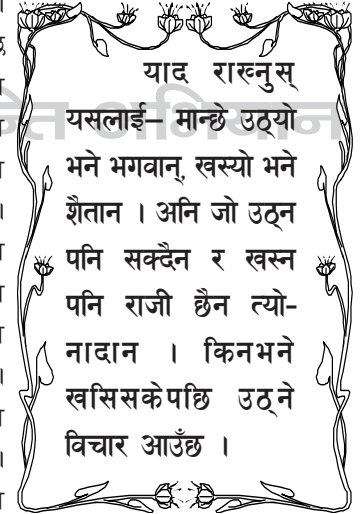 याद राख्नुस्
यसलाई– मान्छे उठ्यो
भने भगवान्, खस्यो भने
शैतान । अनि जो उठ्न
पनि सक्दैन र खस्न
पनि राजी छैन त्यो-
नादान । किनभने
खसिसकेपछि उठ्ने
विचार आउँछ ।